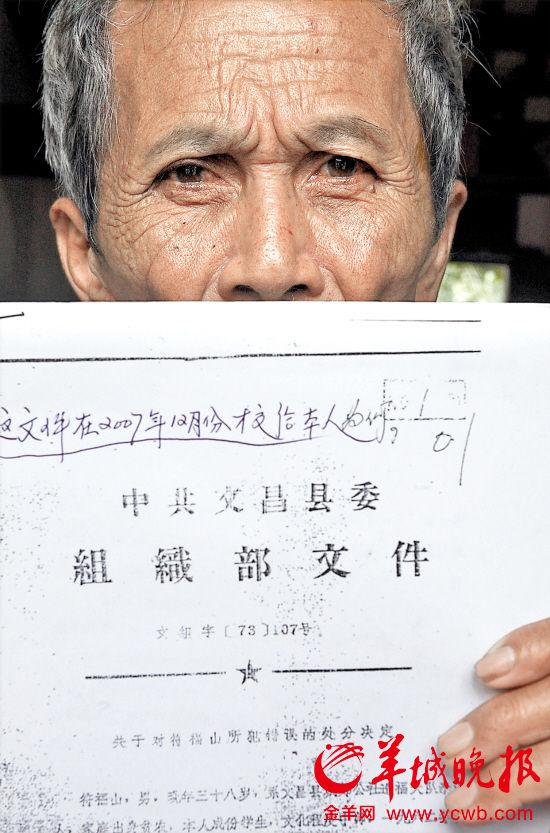 这文件在2007年12月份才交给本人为何?
中共文昌县委
組織部文件
文组字〔73〕107号
关于对符福山所犯错误的处分决定
符福山，男，现年三十八岁，系文昌县
家庭出身贫农，本人成份学生，文化程度
羊城晚报
金羊网 www.ycwb.com